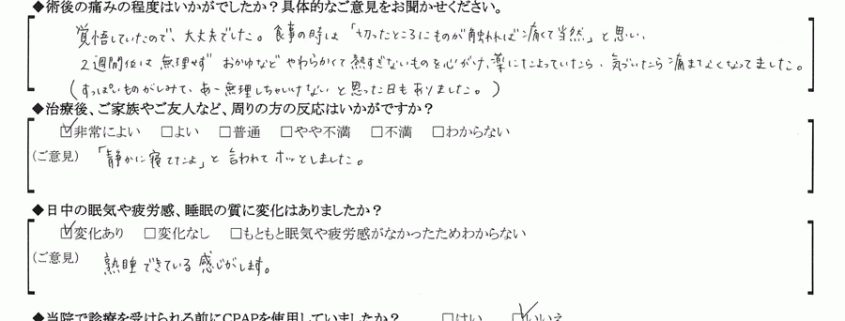 ◆術後の痛みの程度はいかがでしたか？具体的なご意見をお聞かせください。
覚悟していたので、大丈夫でした。食事の時は「切ったところにものが触れれば痛くて当然」と思い、
2週間位は無理せず おかゆなど やわらかくて熱すぎないものを心がけ、薬にたよっていたら、気づいたら痛まなくなってました。
(すっぱいものがしみて、あー無理しちゃいけないと思った日もありました。)
◆治療後、ご家族やご友人など、周りの方の反応はいかがですか？
☑非常によい □よい □普通 □やや不満 □不満 □わからない
(ご意見) 「静かに寝てたよ」と言われてホッとしました。
◆日中の眠気や疲労感、睡眠の質に変化はありましたか？
☑変化あり □変化なし □もともと眠気や疲労感がなかったためわからない
(ご意見) 熟睡できている感じがします。
◆当院で診療を受けられる前にCPAPを使用していましたか？ □はい ☑いいえ